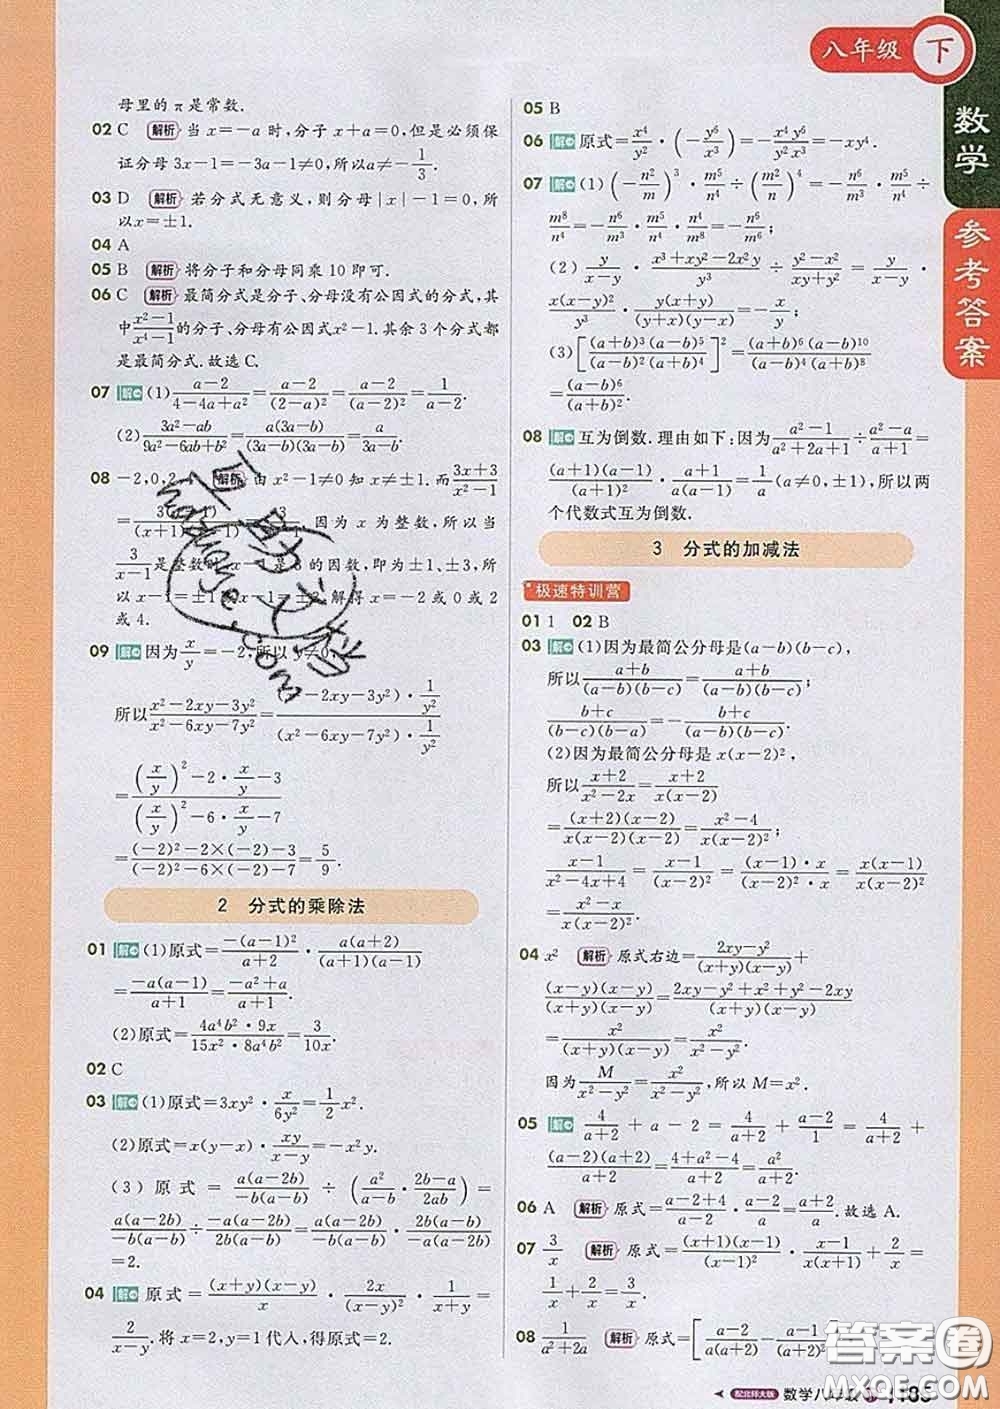 八年级 下
数学
参考答案
母里的π是常数.
02 C 解析 当x=-a时,分子x+a=0,但是必须保
证分母3x-1=-3a-1≠0,所以a≠-1/3.
03 D 解析 若分式无意义,则分母|x|-1=0,所
以x=±1.
04 A
05 B 解析 将分子和分母同乘10即可.
06 C 解析 最简分式是分子、分母没有公因式的分式,其
中(x²-1)/(x⁴-1)的分子、分母有公因式x²-1.其余3个分式都
是最简分式.故选C.
07 解 (1)(a-2)/(4-4a+a²)=(a-2)/(2-a)²=(a-2)/(a-2)²=1/(a-2).
(2)(3a²-ab)/(9a²-6ab+b²)=a(3a-b)/((3a-b)(3a-b))=a/(3a-b).
08 -2,0,2, 解析 由x²-1≠0知x≠±1.而(3x+3)/(x²-1)
因为x为整数,所以当
3/(x-1)是整数时 的因数,即为±1、±3,
解得x=-2或0或2
或4.
09 解 因为x/y=-2,所以y≠0,
所以(x²-2xy-3y²)/(x²-6xy-7y²)=((x²-2xy-3y²)·1/y²)/((x²-6xy-7y²)·1/y²)
=((x/y)²-2·x/y-3)/((x/y)²-6·x/y-7)
=((-2)²-2×(-2)-3)/((-2)²-6×(-2)-7)=5/9.
2 分式的乘除法
01 解 (1)原式=-(a-1)²/(a+2)·a(a+2)/((a+1)(a-1))
=-a(a-1)/(a+1)=(-a²+a)/(a+1).
(2)原式=(4a⁴b²·9x)/(15x²·8a⁴b²)=3/(10x).
02 C
03 解 (1)原式=3xy²·x/(6y²)=1/2 x².
(2)原式=x(y-x)·xy/(x-y)=-x²y.
(3)原式=a(a-2b)/(-b(a-b))÷(a²/(a-b)·(2b-a)/(2ab))=
a(a-2b)/(-b(a-b))÷(-a(a-2b))/(2b(a-b))=a(a-2b)/(-b(a-b))·2b(a-b)/(-a(a-2b))
=2.
04 解 原式=(x+y)(x-y)/x·2x/(x-y)²·1/(x+y)=
2/(x-y).将x=2,y=1代入,得原式=2.
05 B
06 解 原式=x⁴/y²·(-y⁶/x³)=-x⁴y⁶/(y²x³)=-xy⁴.
07 解 (1)(-n²/m)³·m⁵/n⁴÷(m²/n)⁴=-n⁶/m³·m⁵/n⁴÷
m⁸/n⁴=-n⁶/m³·m⁵/n⁴·n⁴/m⁸=-n⁶/m⁶;
(2)y/(x-y)·(x³+xy²-2x²y)/y³÷(y²-x²)/(xy+y²)=y/(x-y)·
x(x-y)²/y³·y(x+y)/((y+x)(y-x))=-x/y;
(3)[(a+b)³(a-b)⁵/(a-b)²(a+b)⁶]²=(a+b)⁶(a-b)¹⁰/((a-b)⁴(a+b)¹²)
=(a-b)⁶/(a+b)⁶.
08 解 互为倒数.理由如下:因为(a²-1)/(a²+2a+1)÷(a²-a)/(a+1)=
(a+1)(a-1)/(a+1)²·(a+1)/(a(a-1))=1/a(a≠0,±1),所以两
个代数式互为倒数.
3 分式的加减法
极速特训营
01 1 02 B
03 解 (1)因为最简公分母是(a-b)(b-c),
所以(a+b)/((a-b)(b-c))=(a+b)/((a-b)(b-c));
(b+c)/((b-c)(a-b))=(b+c)/((a-b)(b-c)).
(2)因为最简公分母是x(x-2)²,
所以(x+2)/(x²-2x)=(x+2)/(x(x-2))
=(x+2)(x-2)/(x(x-2)(x-2))=(x²-4)/(x(x-2)²);
(x-1)/(x²-4x+4)=(x-1)/(x-2)²=((x-1)·x)/((x-2)²·x)=x(x-1)/(x(x-2)²)
=(x²-x)/(x(x-2)²).
04 x² 解析 原式右边=(2xy-y²)/((x+y)(x-y))+
(x-y)(x-y)/((x+y)(x-y))=(2xy-y²+x²+y²-2xy)/((x+y)(x-y))
=x²/((x+y)(x-y))=x²/(x²-y²).
因为M/(x²-y²)=x²/(x²-y²),所以M=x².
05 解 4/(a+2)+a-2=4/(a+2)+(a-2)/1=4/(a+2)+
(a-2)(a+2)/(a+2)=(4+a²-4)/(a+2)=a²/(a+2).
06 A 解析 原式=(a-2+4)/(a-2)·(a-2)/a=(a+2)/a.故选A.
07 3/x 解析 原式=(x+1)(x-1)/(x-1)²·(x-1)/(x(x+1))+2/x=
1/x+2/x=3/x.
08 1/(a²+2a) 解析 原式=[(a-2)/(a(a+2))-(a-1)/
配北师大版 数学八年级 下
答案圈
MXQE.COM